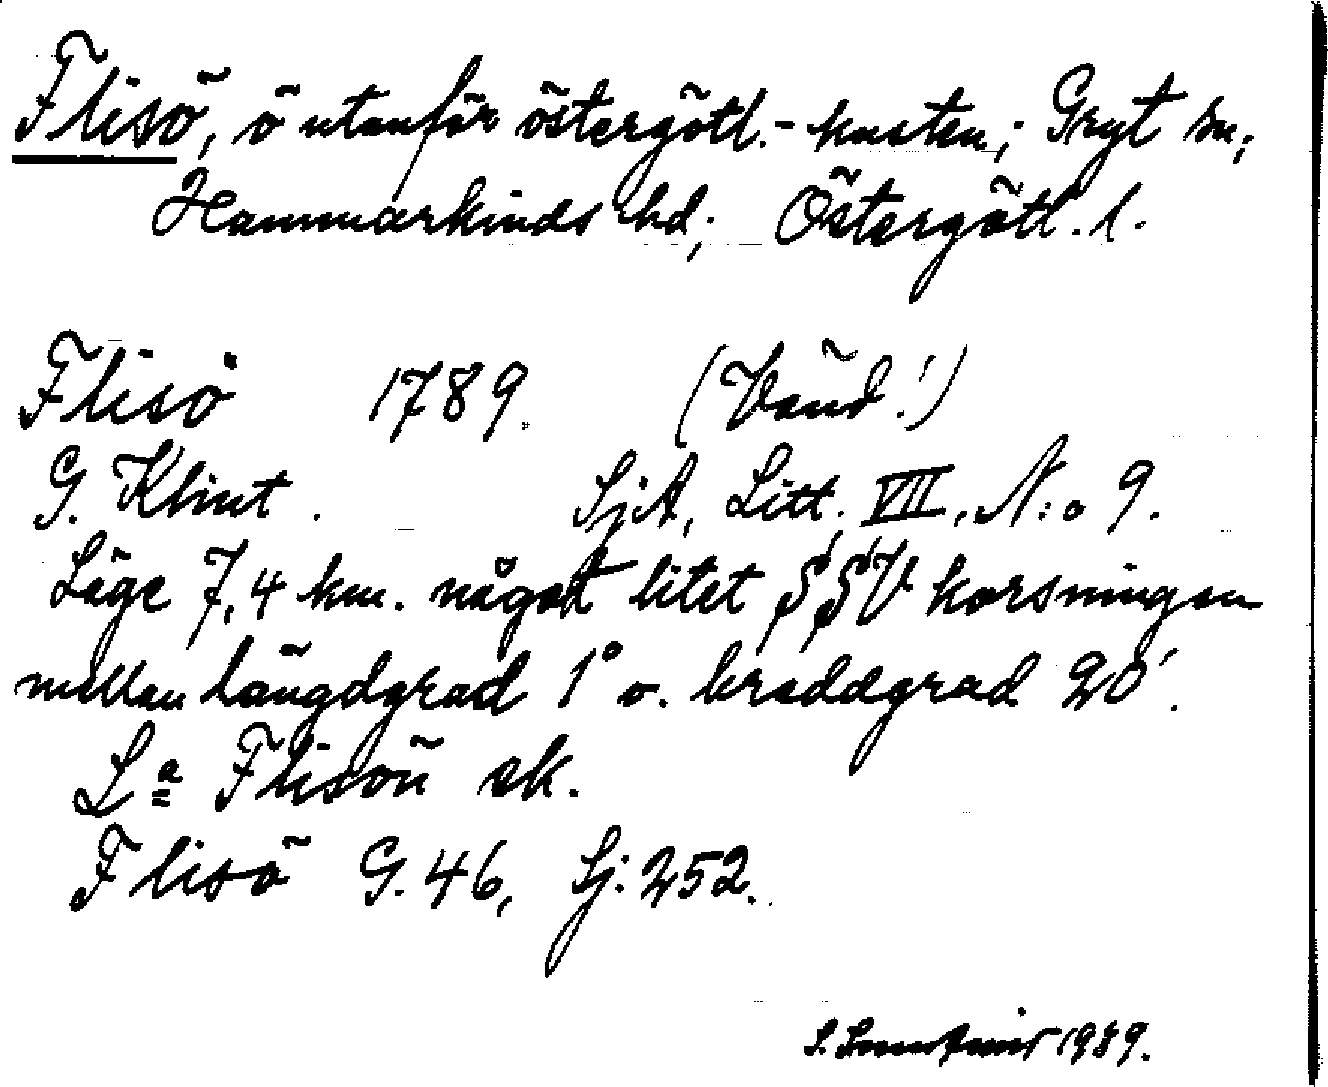 Flisö, ö utanför östergötl.-kusten; Gryt sn;
Hammarkinds hd; Östergötl. l.
Flisö 1789. (Vänd!)
G. Klint. SjA, Litt. VII, N:o 9.
Läge 7,4 km. något litet SSV korsningen
mellan längdgrad 1° o. breddgrad 20'.
La Flisön ek.
Flisö G. 46, Sj. 252.
S. 1939.